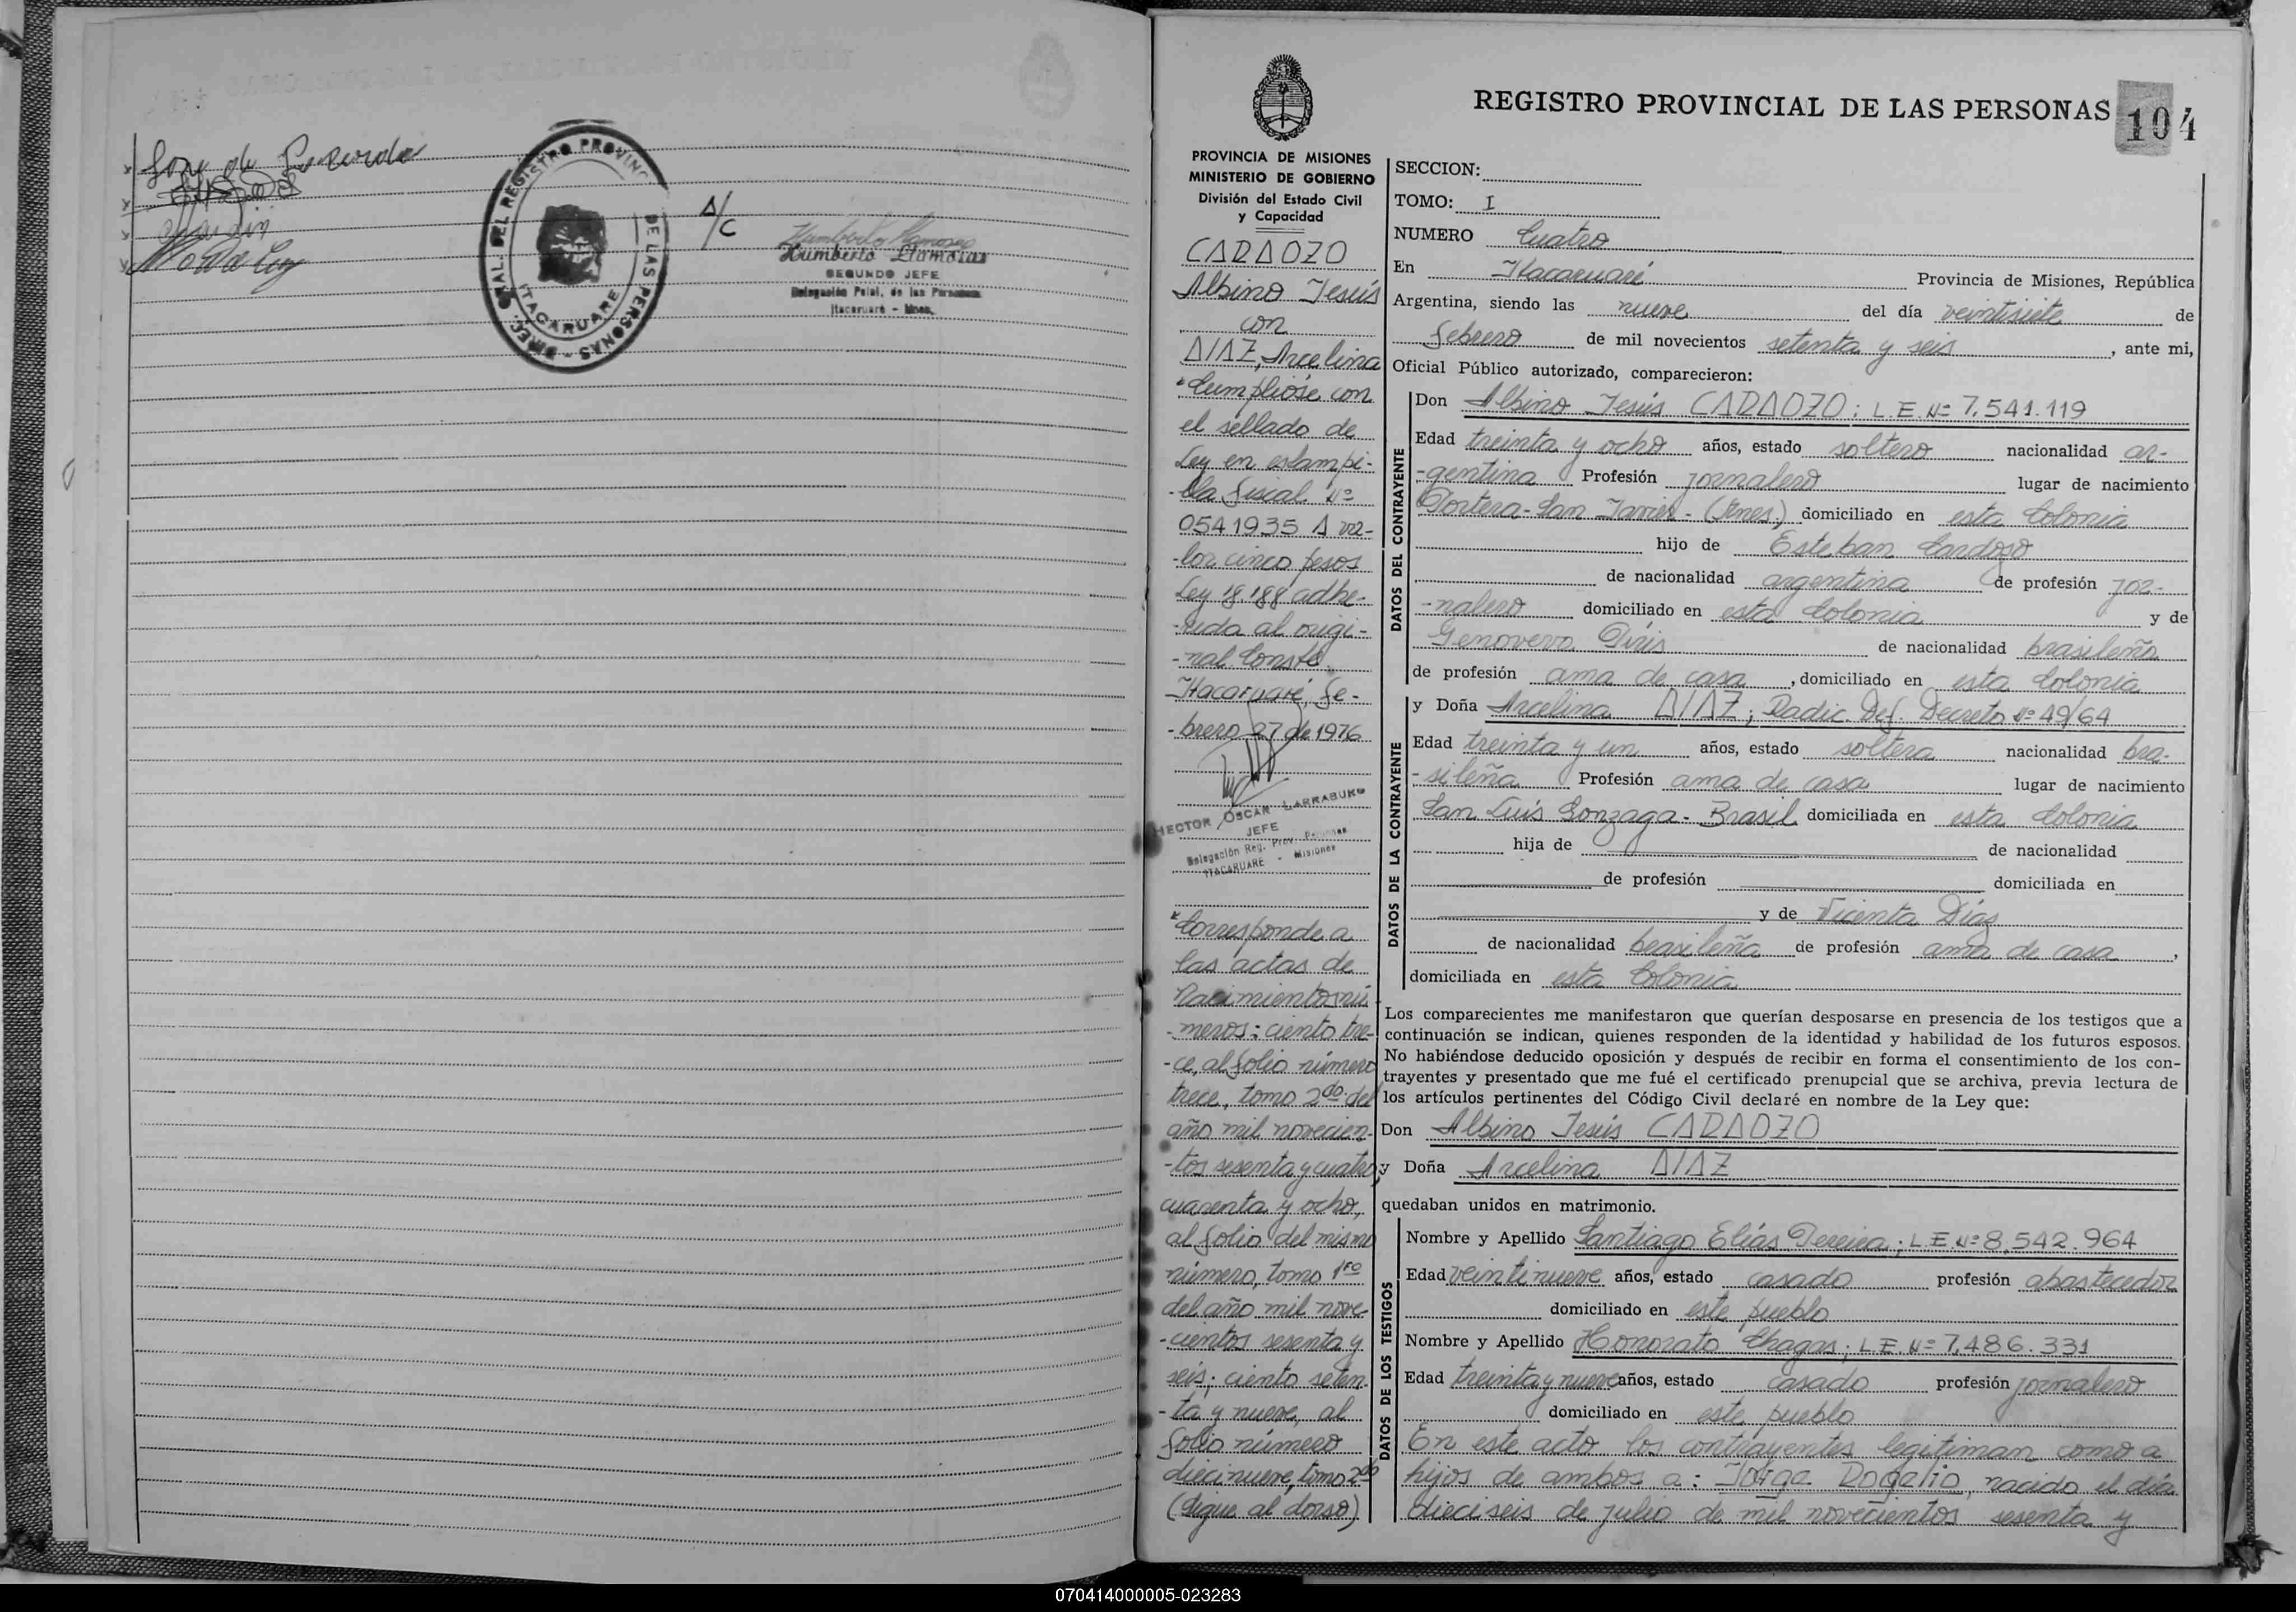 DIREC. GRAL. DEL REGISTRO PROVINC. DE LAS PERSONAS
ITACARUARE
A/C
Humberto Llamosas
SEGUNDO JEFE
Delegación Pcial. de las Personas
Itacaruaré - Mnes.
REGISTRO PROVINCIAL DE LAS PERSONAS
104
PROVINCIA DE MISIONES
MINISTERIO DE GOBIERNO
División del Estado Civil
y Capacidad
CARDOZO
Albino Jesús
con
DIAZ, Arcelina
*Cumplióse con
el sellado de
Ley en estampi-
-lla fiscal Nº
0541935 A va-
-lor cinco pesos
Ley 18.188 adhe-
-rida al origi-
-nal Conste.
Itacaruaré, fe-
-brero 27 de 1976
HECTOR OSCAR LARRABURO
JEFE
Delegación Reg. Prov. Personas
ITACARUARE - Misiones
*Corresponde a
las actas de
Nacimientos nú-
-meros: ciento tre-
-ce, al folio número
trece, tomo 2do. del
año mil novecien-
-tos sesenta y cuatro,
cuarenta y ocho,
al folio del mismo
número, tomo 1ro
del año mil nove-
-cientos sesenta y
seis; ciento seten-
-ta y nueve, al
folio número
diecinueve, tomo 2do
(Sigue al dorso)
SECCION:
TOMO: I
NUMERO Cuatro
En Itacaruaré Provincia de Misiones, República
Argentina, siendo las nueve del día veintisiete de
febrero de mil novecientos setenta y seis, ante mi,
Oficial Público autorizado, comparecieron:
DATOS DEL CONTRAYENTE
Don Albino Jesús CARDOZO; L.E. Nº 7.541.119
Edad treinta y ocho años, estado soltero nacionalidad ar-
-gentina Profesión jornalero lugar de nacimiento
Portera-San Javier-(Mnes.) domiciliado en esta Colonia
hijo de Esteban Cardozo
de nacionalidad argentina de profesión jor-
-nalero domiciliado en esta Colonia y de
Genoveva Píris de nacionalidad brasileña
de profesión ama de casa, domiciliado en esta Colonia
DATOS DE LA CONTRAYENTE
y Doña Arcelina DIAZ; Radic. Def. Decreto Nº 49/64
Edad treinta y un años, estado soltera nacionalidad bra-
-sileña Profesión ama de casa lugar de nacimiento
San Luis Gonzaga-Brasil domiciliada en esta Colonia
hija de de nacionalidad
de profesión domiciliada en
y de Vicenta Díaz
de nacionalidad brasileña de profesión ama de casa,
domiciliada en esta Colonia
Los comparecientes me manifestaron que querían desposarse en presencia de los testigos que a
continuación se indican, quienes responden de la identidad y habilidad de los futuros esposos.
No habiéndose deducido oposición y después de recibir en forma el consentimiento de los con-
trayentes y presentado que me fué el certificado prenupcial que se archiva, previa lectura de
los artículos pertinentes del Código Civil declaré en nombre de la Ley que:
Don Albino Jesús CARDOZO
y Doña Arcelina DIAZ
quedaban unidos en matrimonio.
DATOS DE LOS TESTIGOS
Nombre y Apellido Santiago Elías Pereira; L.E. Nº 8.542.964
Edad veintinueve años, estado casado profesión abastecedor
domiciliado en este pueblo
Nombre y Apellido Honorato Chagas; L.E. Nº 7.486.331
Edad treinta y nueve años, estado casado profesión jornalero
domiciliado en este pueblo
En este acto los contrayentes legitiman como a
hijos de ambos a: Jorge Rogelio, nacido el día
dieciseis de julio de mil novecientos sesenta y
070414000005-023283